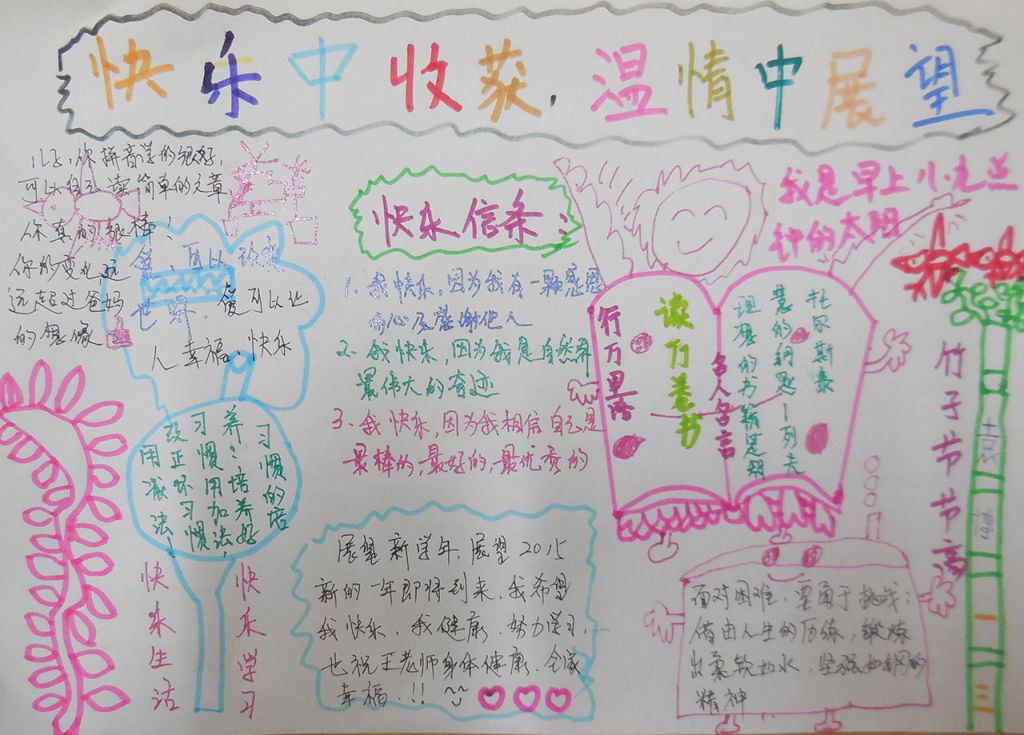 快乐中收获,温情中展望
儿子,你拼音学的很好,
可以自己读简单的文章,
你真的很棒!
你的变化远
远超过爸妈
的想像
爱,可以改变
世界,爱可以让
人幸福、快乐
习惯的培
养:培养好
习惯用加法,
改正坏习惯
用减法!
快乐生活
快乐学习
快乐信条:
1、我快乐,因为我有一颗感恩
的心应感谢他人
2、我快乐,因为我是自然界
最伟大的奇迹
3、我快乐,因为我相信自己是
最棒的,最好的,最优秀的
展望新学年,展望2015
新的一年即将到来,我希望
我快乐,我健康,努力学习,
也祝王老师身体健康,全家
幸福!!!
我是早上八九点
钟的太阳
读万卷书
行万里路
名人名言
理想的书籍是智
慧的钥匙—列夫
托尔斯泰
面对困难,要勇于挑战:
借由人生的历练,锻炼
出柔软如水,坚强如钢的
精神
竹子节节高